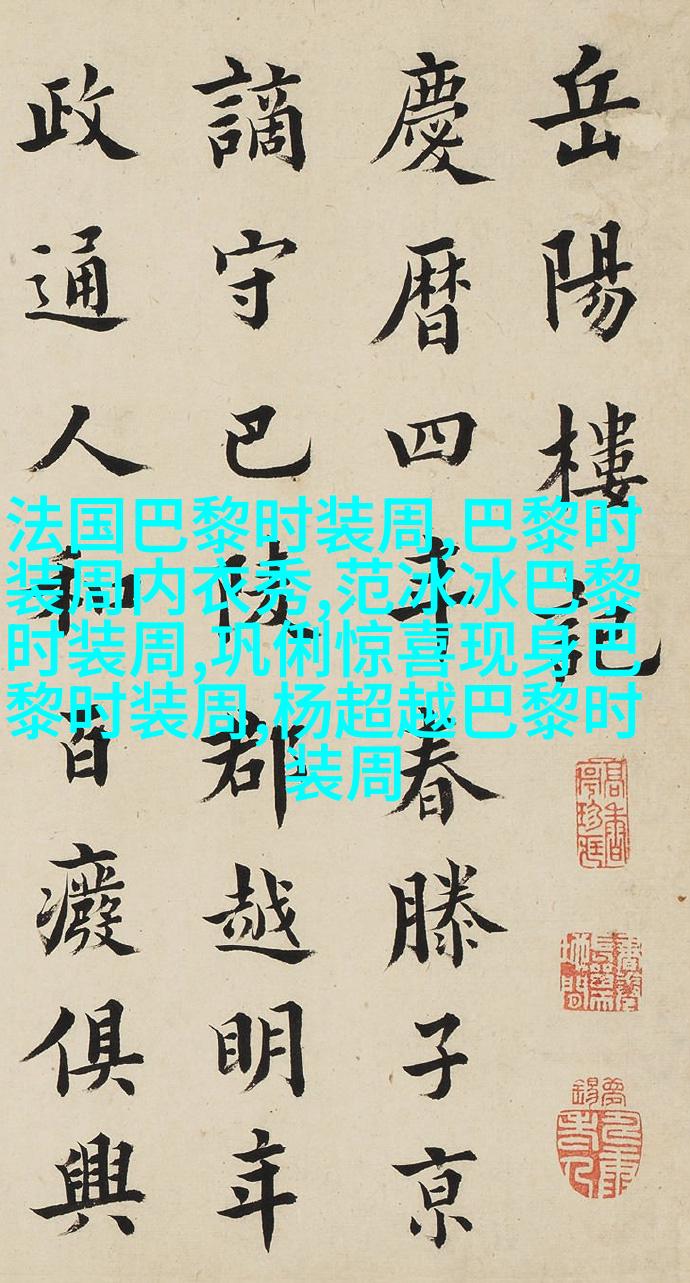 岳陽樓記
慶暦四年春滕子京
謫守巴陵郡越明年
政通人和百癈俱興
法国巴黎时装周,巴黎时
装周内衣秀,范冰冰巴黎
时装周,巩俐惊喜现身巴
黎时装周,杨超越巴黎时
装周